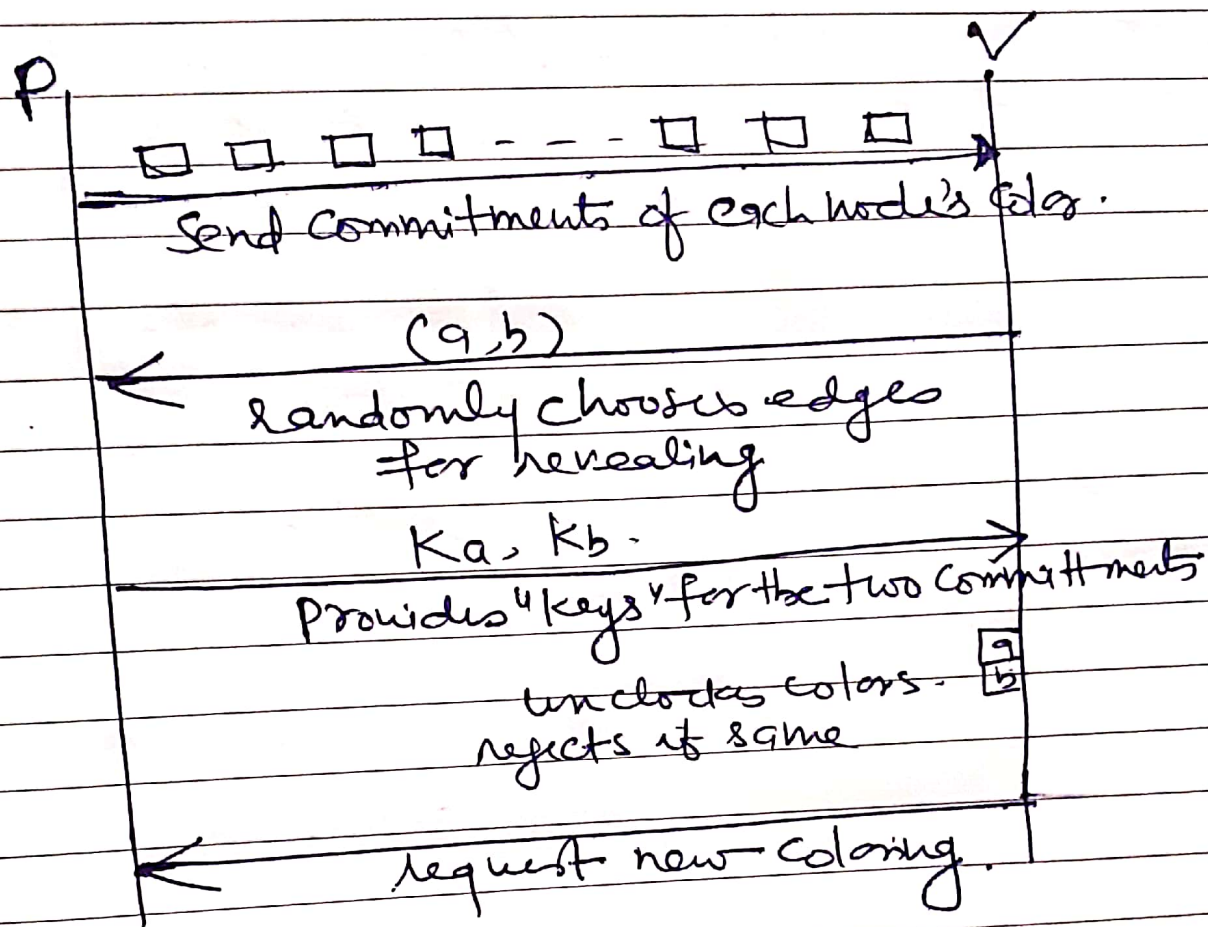 P
V
Send Commitments of each node's Color.
(a,b)
randomly chooses edges
for revealing
Ka, Kb.
Provides "keys" for the two Committments
a
b
unclocks colors.
rejects if same
request new coloring.